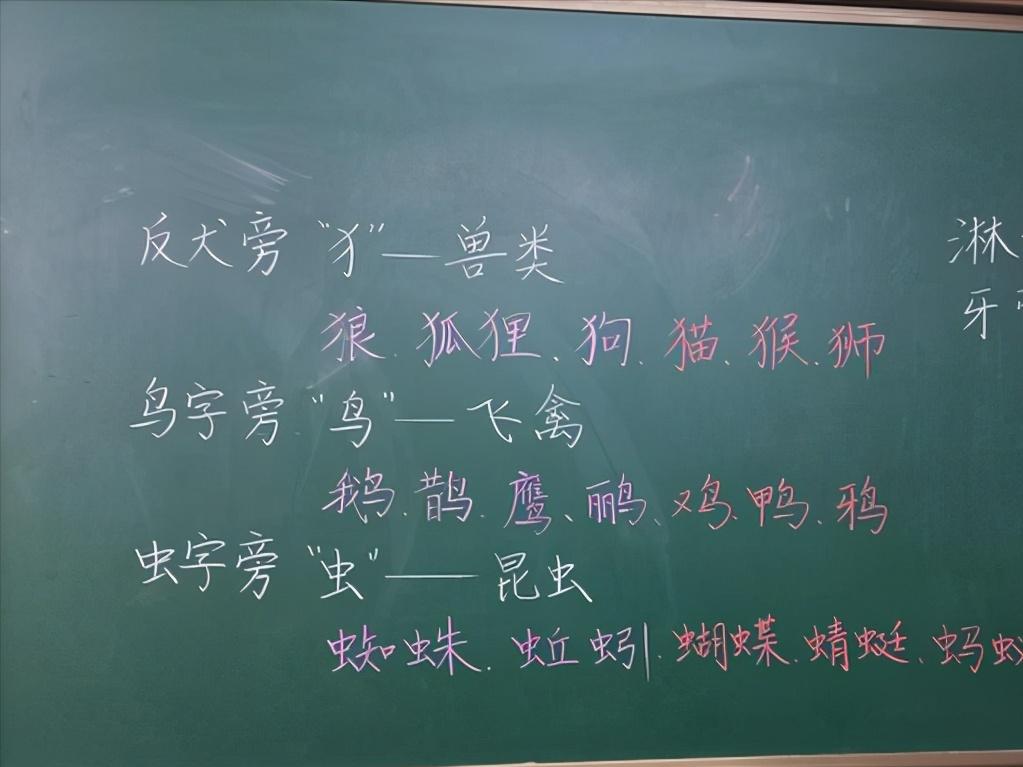 反犬旁“犭”——兽类
狼、狐狸、狗、猫、猴、狮
鸟字旁“鸟”——飞禽
鹅、鹊、鹰、鹂、鸡、鸭、鸦
虫字旁“虫”——昆虫
蜘蛛、蚯蚓、蝴蝶、蜻蜓、蚂蚁
淋
牙